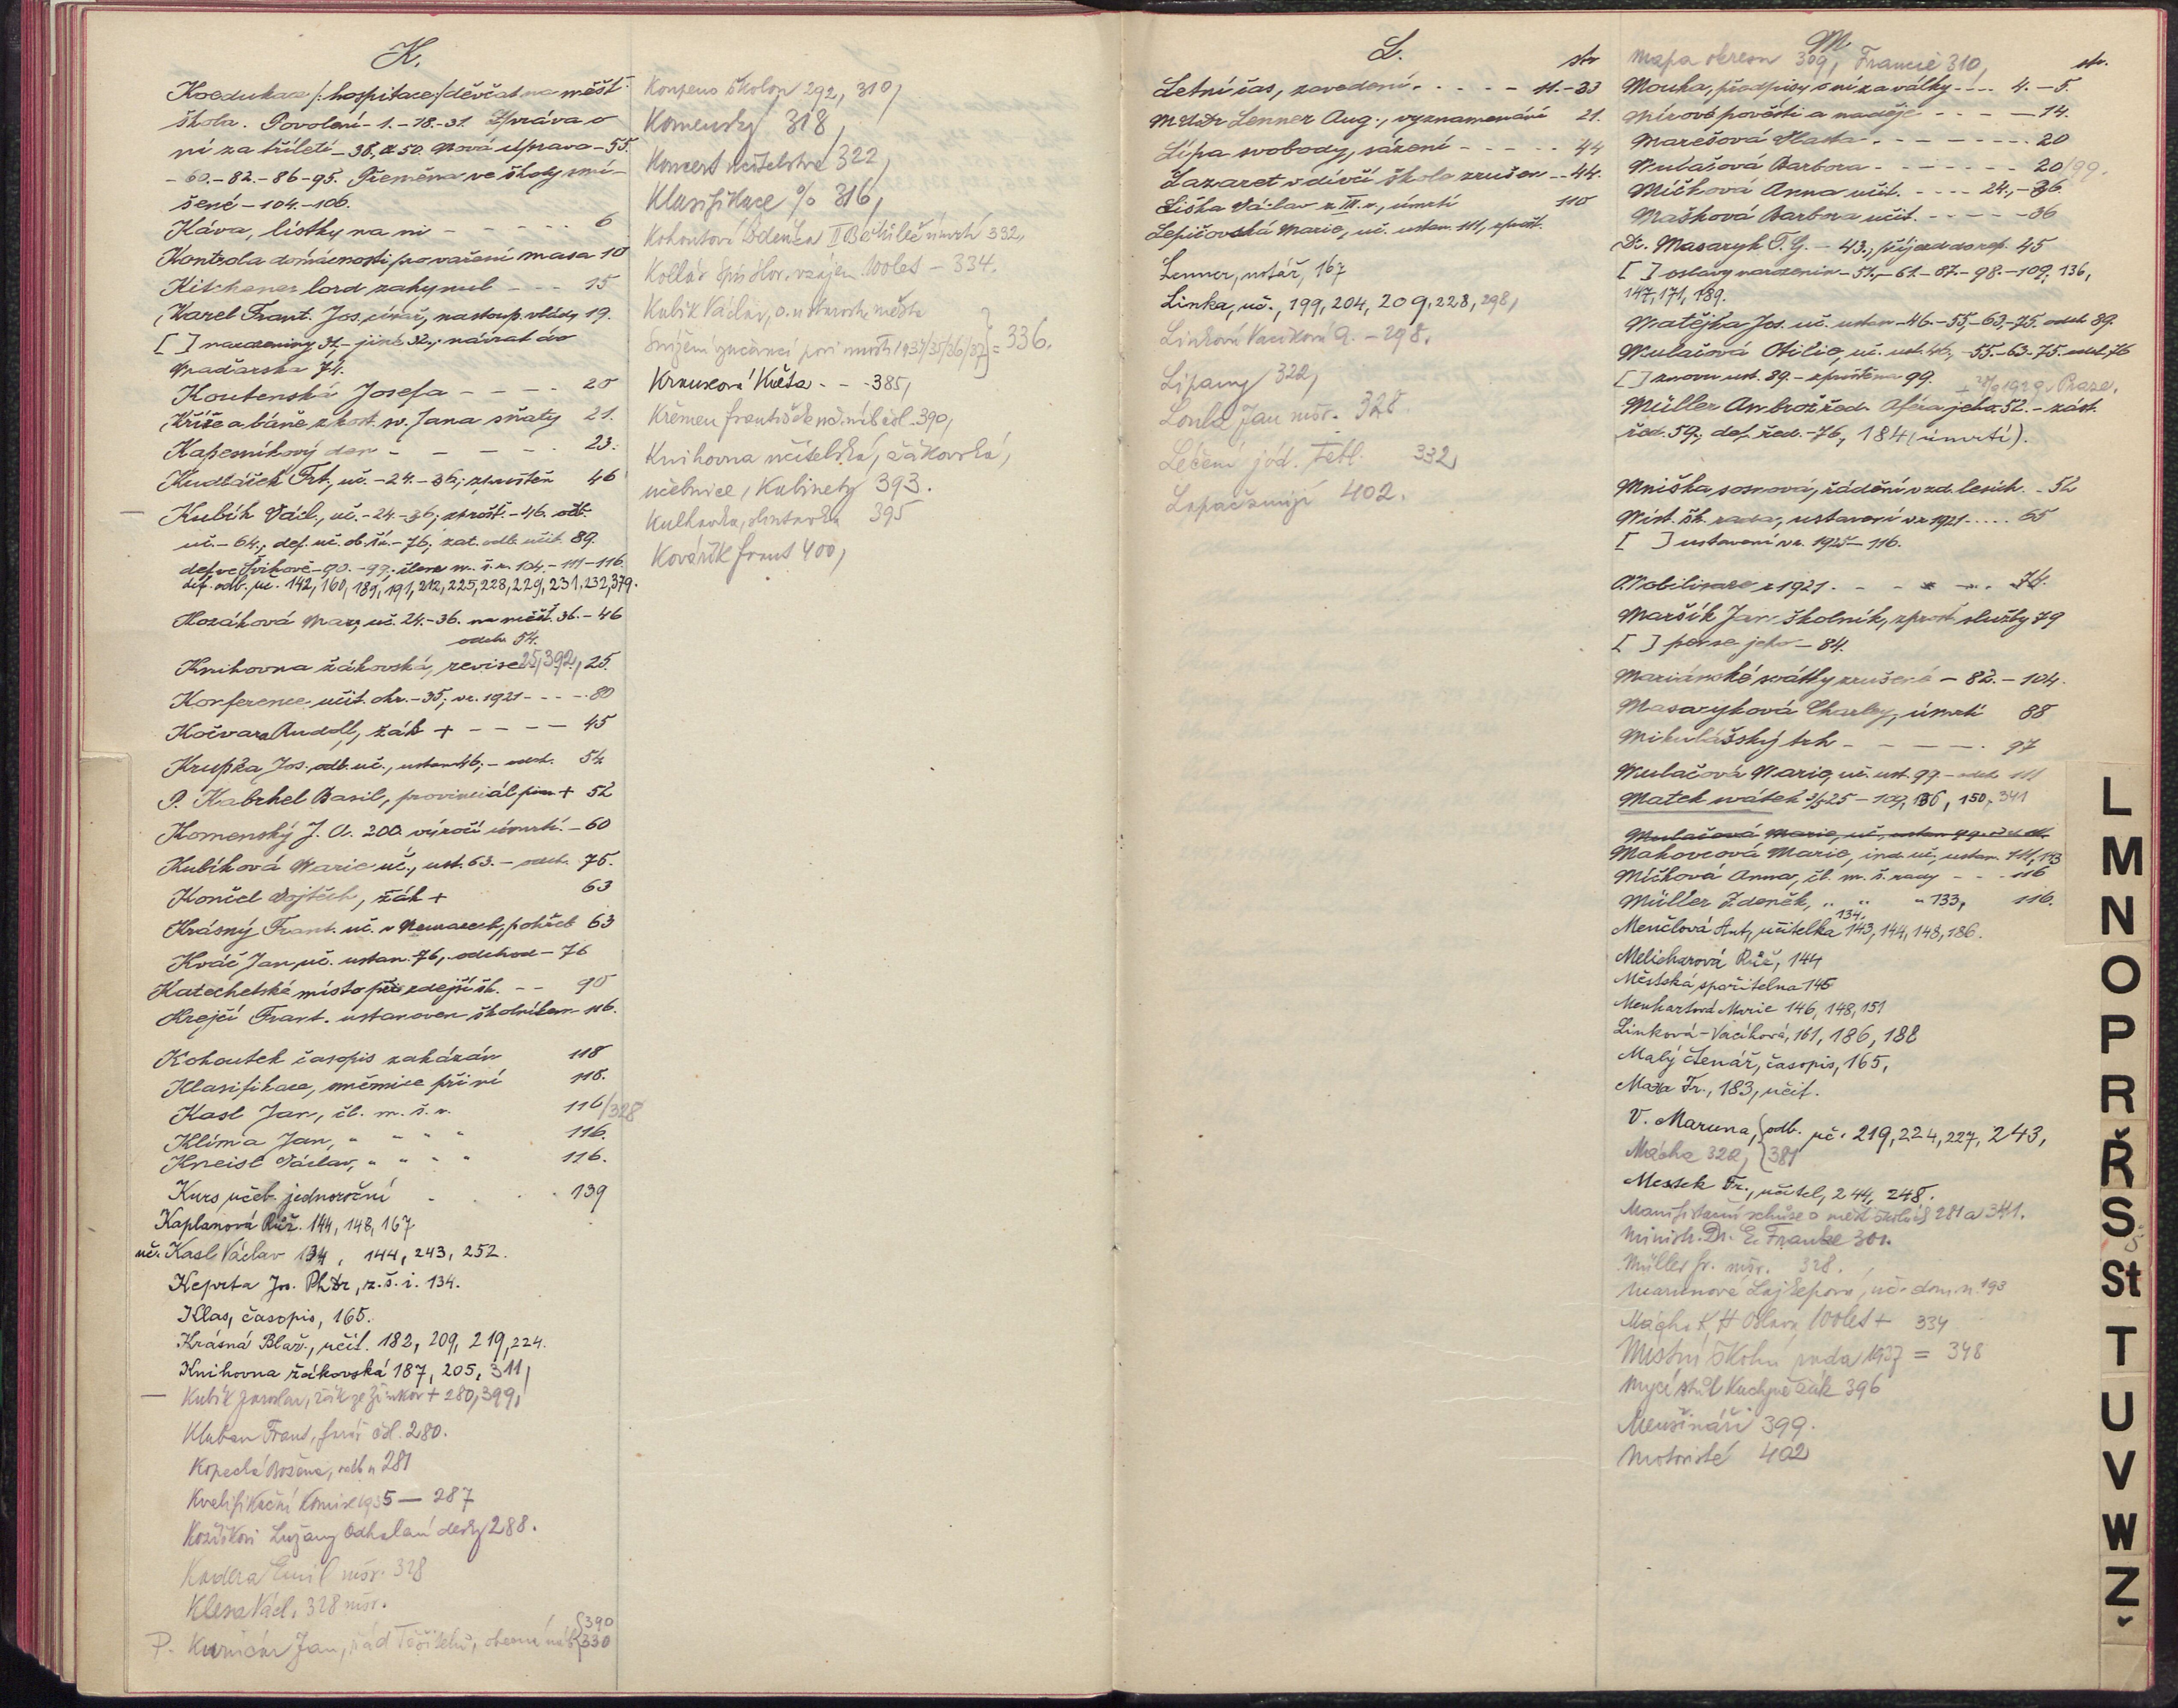 K.
Koedukace /: hospitace :/ děvčat na měšť.
škola. Povolení - 1. - 18. - 31. Zpráva o
ní za tříletí - 38, a 50. Nová úprava - 55.
- 60. - 82. - 86 - 95. Přeměna ve školy smí-
šené - 104. - 106.
Káva, lístky na ni - - - - - 6
Kontrola domácností po vaření masa 10
Kitchener lord zahynul - - - 15
Karel Frant. Jos. císař, nastoup. vlády 19.
[ ] narozeniny 31, - jiné 32, návrat do
Maďarska 74.
Koutenská Josefa - - - - 20
Kříže a báně z kost. sv. Jana sňaty 21.
Kapesníkový den - - - - - 23.
Kudláček Frt., uč. - 24. - 36; zproštěn 46
Kubík Václ., uč. - 24 - 36; zprošt. - 46. odb.
uč. - 64., def. uč. ob. šk. - 76; zat. odb. učit. 89.
def. ve Švihově - 90. - 99. člen m. š. r. 104. - 111 - 116.
def. odb. uč. 142, 160, 181, 191, 212, 225, 228, 229, 231, 232, 379.
Kozáková Marie, uč. 24. - 36. na měšť. 36. - 46
odch. 54.
Knihovna žákovská, revise 25, 392, 25.
Konference učit. okr. - 35; v r. 1921 - - - - 80
Kočvara Rudolf, žák + - - - - 45
Krupka Jos. odb. uč., ustan. 46; - odch. 54
P. Kabrhel Basil, provinciál piar. + 52
Komenský J. A. 200. výročí úmrtí. - 60
Kubíková Marie uč., ust. 63. - odch. 75.
Končel Vojtěch, žák + 63
Krásný Frant. uč. v Nemanech, pohřeb 63
Kváč Jan, uč. ustan. 76, odchod - 76
Katechetské místo při zdejší šk. - - 90
Krejčí Frant. ustanoven školníkem 116.
Kohoutek časopis zakázán 118
Klasifikace, směrnice při ní 118.
Kasl Jan, čl. m. š. r. 116/328
Klíma Jan, " " " " 116.
Kneisl Václav, " " " " 116.
Kurs učeb. jednoroční . . . 139
Kaplanová Růž. 144, 148, 167.
uč. Kasl Václav 134, 144, 243, 252.
Keprta Jos. PhDr, z. š. i. 134.
Klas, časopis, 165.
Krásná Blaž., učit. 182, 209, 219, 224.
Knihovna žákovská 187, 205, 311,
Kubík Jaroslav, žák ze Žinkov + 280, 399,
Kluban Frant, farář čsl. 280.
Kopecká Božena, odb. u 281
Kvalifikační komise 1935 - 287
Kožíškovi Lužany Odhalení desky 288.
Kondera Emil mšr. 328
Klesa Václ. 328 mšr.
P. Kuničár Jan, řád Těšitelů, obecné náb. {390
330
Konsens školou 292, 310,
Komenský 318,
Koncert učitelstva 322,
Klasifikace % 316,
Kohoutová Zdenka II B úmrtí 332,
Kollár Spis Slov. vzájem. 100 let - 334.
Kubík Václav, o. u starosta města
Snížení 1937/35/36/37 = 336.
Krausová Květa - - - 385,
Křemen František nád. náb. čsl. 390,
Knihovna učitelská, žákovská,
učebnice, Kabinety 393.
Kulhavka, slintavka 395
Kovářík Frant 400,
L. str
Letní čas, zavedení. . . . - - 11. - 33
MUDr Lenner Aug., vyznamenání 21.
Lípa svobody, sázení - - - - - 44
Lazaret v dívčí škole zrušen - - 44.
Liška Václav z III. r., úmrtí 110
Lepičovská Marie, uč. ustan. 111, zprošt.
Lenner, notář, 167
Linka, uč., 199, 204, 209, 228, 298,
Linková Vacíková A. - 298.
Lipany 322,
Louda Jan mšr. 328.
Léčení jód. tabl. 332,
Lopač zmijí 402.
M
Mapa okresu 309, Francie 310, str.
Mouka, předpisy o ní za války - - - 4. - 5.
Mírové pověsti a naděje - - - - 14.
Marešová Vlasta. - - - - - - - 20
Mulačová Barbora - - - - - - - 20/99.
Míčková Anna učit. - - - - 24, - 36.
Mašková Barbora učit. - - - - - 36
Dr. Masaryk T. G. - 43., příjezd do rep. 45
[ ] oslavy narozenin - 51, - 61 - 67. - 98. - 109, 136,
147, 171, 189.
Matějka Jos. uč. ustan - 46. - 55, - 63, - 75. odch. 89.
Mulačová Otilie, uč. ust. 46, - 55. - 63. - 75. odch. 76
[ ] znovu ust. 89. - zproštěna 99. + 28/9 1929 v Praze.
Müller Ambrož řed. Aféra jeho 52. - zást.
řed. 59., def. řed. - 76, 184 (úmrtí).
Mniška sosnová, řádění v zd. lesích. - 52
Míst. šk. rada, ustavení v r. 1921 . . . . . 65
[ ] ustavení v r. 1925 - 116.
Mobilisace r 1921. - - - - - 74.
Maršík Jan školník, zprošť. služby 79
[ ] pense jeho - 84.
Mariánské svátky zrušené - 82. - 104.
Masaryková Charley, úmrtí 88
Mikulášský trh - - - - - 97
Mulačová Marie, uč. ust. 99. - odch. 111
Matek svátek 3/5 25 - 109, 136, 150, 341
Mulačová Marie, uč., ustan 99.
Mahovcová Marie, ind. uč. ustan. 111, 113
Míčková Anna, čl. m. š. rady - - - 116
Müller Zdeněk, " " " 133, 116.
134,
Menčlová Ant., učitelka 143, 144, 148, 186.
Melicharová Růž, 144
Městská spořitelna 145
Menhartová Marie 146, 148, 151
Linková-Vacíková, 161, 186, 188
Malý čtenář, časopis, 165,
Maxa Fr., 183, učit.
V. Maruna, {odb. uč. 219, 224, 227, 243,
Mácha 322, {381
Mestek Fr., učitel, 244, 248.
Manifestační schůze o měšť. školách 281 a 341.
Ministr Dr. E. Franke 301.
Müller Fr. mšr. 328.
Marunová Lajšepová, uč. dom. n. 193
Mácha K. H. Oslava 100 let + 334
Místní školní rada 1937 = 348
Mycí stůl Kuchyně žák 396
Menšináři 399.
Motoristé 402
L
M
N
O
P
R
Ř
S
Š
St
T
U
V
W
Z
ˇ